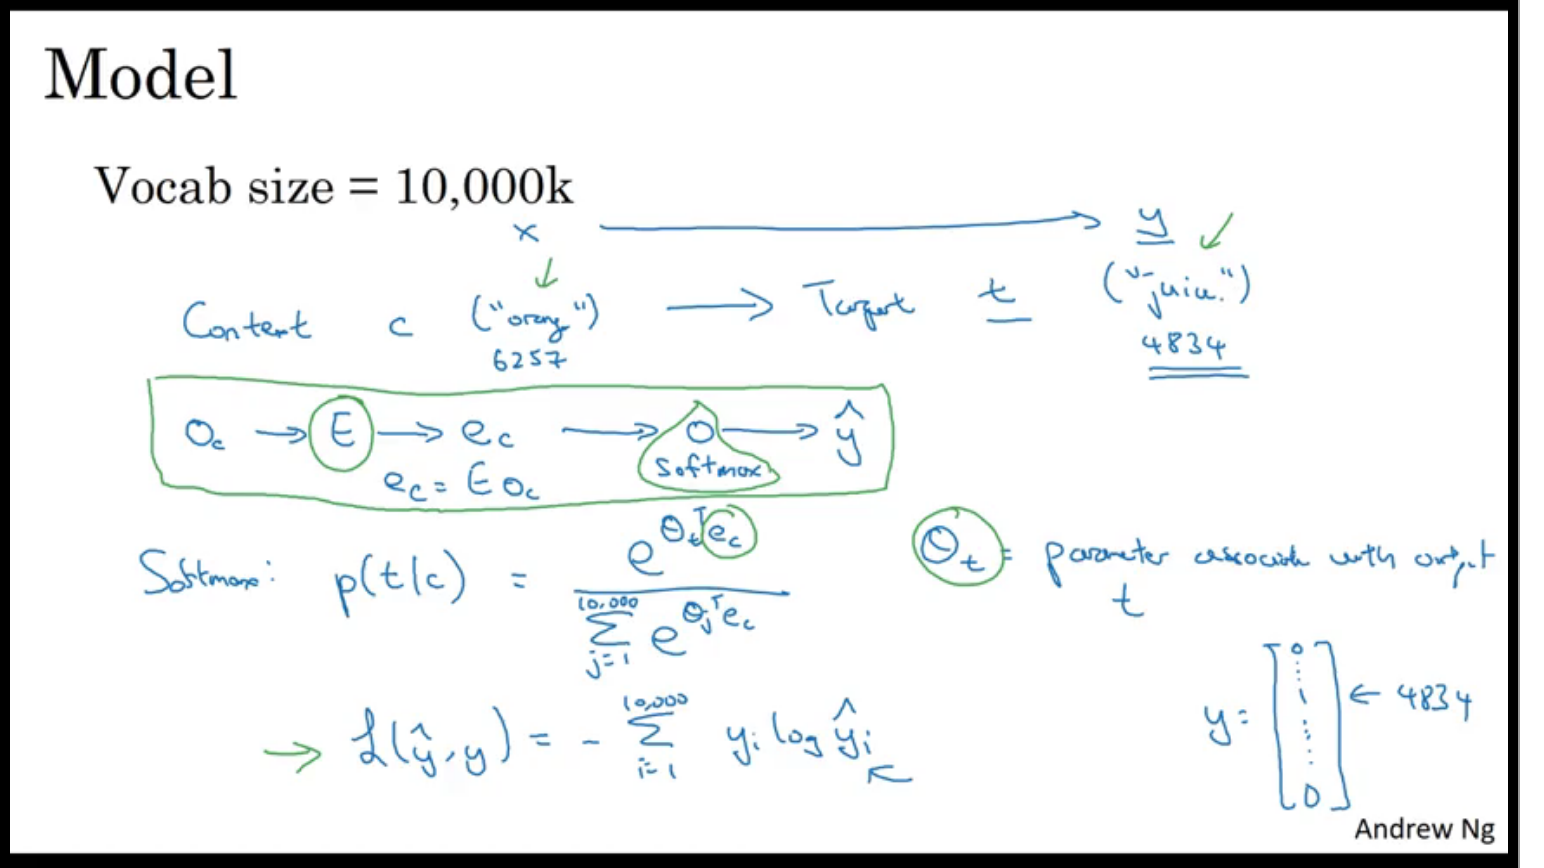 Model
Vocab size = 10,000k
x → y
Content c ("orang") → Target t ("juice")
6257 4834
O_c → E → e_c → O → ŷ
softmax
e_c = E O_c
Softmax: p(t|c) = e^{θ_t^T e_c} / Σ_{j=1}^{10,000} e^{θ_j^T e_c}
θ_t = parameter associate with output t
ℒ(ŷ,y) = - Σ_{i=1}^{10,000} y_i log ŷ_i
y = [0 ⋮ 1 ⋮ 0] ← 4834
Andrew Ng